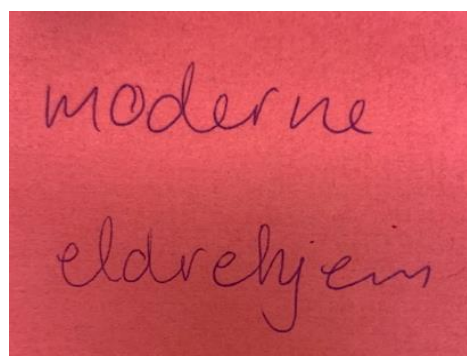 moderne
eldrehjem